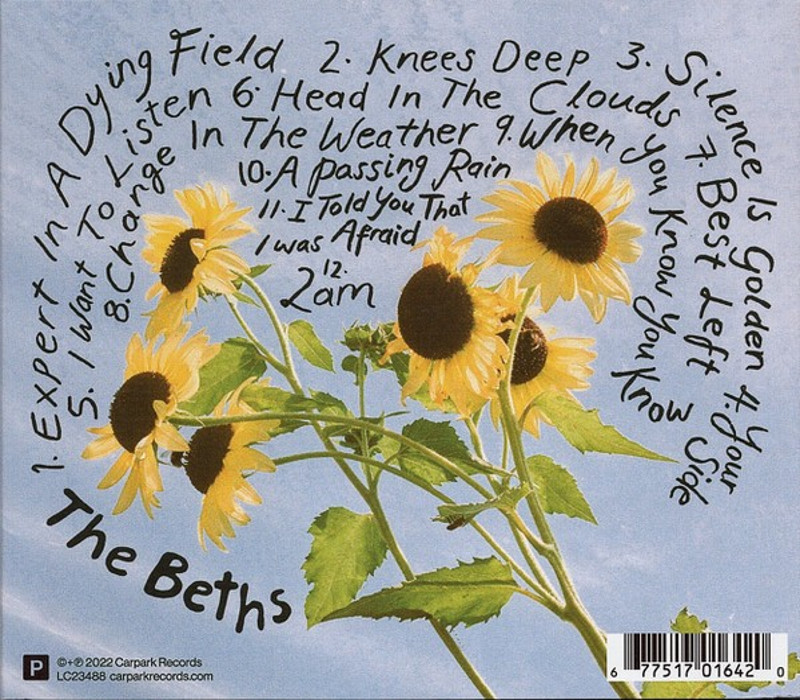 1. Expert In A Dying Field 2. Knees Deep 3. Silence Is Golden 4. Your Side
5. I Want To Listen 6. Head In The Clouds 7. Best Left
8. Change In The Weather 9. When You Know You Know
10. A Passing Rain
11. I Told You That
I was Afraid
12.
2am
The Beths
P
©+℗ 2022 Carpark Records
LC23488 carparkrecords.com
6 77517 01642 0